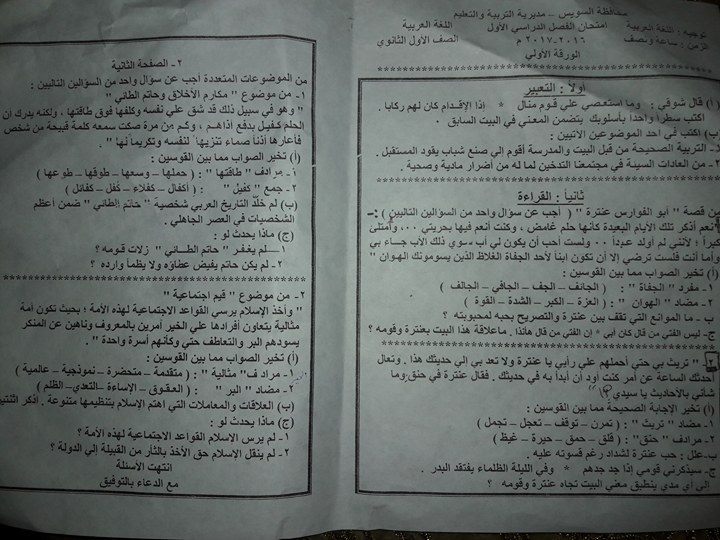 محافظة السويس – مديرية التربية والتعليم
توجيه : اللغة العربية امتحان الفصل الدراسي الأول اللغة العربية
الزمن : ساعة ونصف ٢٠١٦ – ٢٠١٧ م الصف الأول الثانوي
الورقة الأولي
أولاً : التعبير
(أ) قال شوقي : وما استعصي علي قوم منال * إذا الإقدام كان لهم ركابا .
اكتب سطراً واحداً بأسلوبك يتضمن المعني في البيت السابق .
(ب) اكتب في أحد الموضوعين الآتيين :
التربية الصحيحة من قبل البيت والمدرسة أقوم إلي صنع شباب يقود المستقبل .
من العادات السيئة في مجتمعنا التدخين لما له من أضرار مادية وصحية .
ثانياً : القراءة
من قصة " أبو الفوارس عنترة " ( أجب عن سؤال واحد من السؤالين التاليين ) :-
نعم أذكر تلك الأيام البعيدة كأنها حلم غامض ، وكنت أنعم فيها بحريتي .. وأمتلئ
كبراً ؛ لأنني لم أولد عبداً .. ولست أحب أن يكون لي أب سوي ذلك الأب جاء بي
وأما أنت فلست ترضي إلا أن تكون ابناً لأحد الجفاة الغلاظ الذين يسومونك الهوان "
(أ) تخير الصواب مما بين القوسين :
١ – مفرد " الجفاة " : ( الجانف – الجف – الجافي – الجالف )
٢ – مضاد " الهوان " : ( العزة – الكبر – الشدة – القوة )
ب – ما الموانع التي تقف بين عنترة والتصريح بحبه لمحبوبته ؟
ج – ليس الفتي من قال كان أبي * إن الفتي من قال هائذا . ماعلاقة هذا البيت بعنترة وقومه ؟
" تريث بي حتي أحملهم علي رأيي يا عنترة ولا تعد بي إلي حديثك هذا . وتعال
أحدثك الساعة عن أمر كنت أود أن أبدأ به في حديثك . فقال عنترة في حنق وما
شأني بالأحاديث يا سيدي ؟! "
(أ) تخير الإجابة الصحيحة مما بين القوسين :
١ – مضاد " تريث " : ( تمرن – توقف – تعجل – تجمل )
٢ – مرادف " حنق" : ( قلق – حمق – حيرة – غيظ )
ب – علل : حب عنترة لشداد رغم قسوته عليه .
ج – سيذكرني قومي إذا جد جدهم * وفي الليلة الظلماء يفتقد البدر .
إلي أي مدي ينطبق معني البيت تجاه عنترة وقومه ؟
٢ – الصفحة الثانية
من الموضوعات المتعددة أجب عن سؤال واحد من السؤالين التاليين :
١ – من موضوع " مكارم الأخلاق وحاتم الطائي "
" وهو في سبيل ذلك قد شق علي نفسه وكلفها فوق طاقتها ، ولكنه يدرك أن
الحلم كفيل بدفع أذاهم ، وكم من مرة صكت سمعه كلمة قبيحة من شخص
فأعارها أذناً صماء تنزيهاً لنفسه وتكريماً لها "
(أ) تخير الصواب مما بين القوسين :
١ – مرادف " طاقتها " : ( حملها – وسعها – طوقها – طوعها )
٢ – جمع " كفيل " : ( أكفال – كفلاء – كفل – كفائل )
(ب) لم خلّد التاريخ العربي شخصية " حاتم الطائي " ضمن أعظم
الشخصيات في العصر الجاهلي .
(ج) ماذا يحدث لو :
١ – لم يغفر " حاتم الطائي " زلات قومه ؟
٢ – لم يكن حاتم يفيض عطاؤه ولا يظمأ وارده ؟
٢ – من موضوع " قيم اجتماعية "
" وأخذ الإسلام يرسي القواعد الاجتماعية لهذه الأمة ؛ بحيث تكون أمة
مثالية يتعاون أفرادها علي الخير آمرين بالمعروف وناهين عن المنكر
يسودهم البر والتعاطف حتي وكأنهم أسرة واحدة " .
(أ) تخير الصواب مما بين القوسين :
١ – مرادف " مثالية " : ( متقدمة – متحضرة – نموذجية – عالمية )
٢ – مضاد " البر " : ( العقوق – الإساءة – التعدي – الظلم )
(ب) العلاقات والمعاملات التي اهتم الإسلام بتنظيمها متنوعة . اذكر اثنتين
(ج) ماذا يحدث لو :
١ – لم يرس الإسلام القواعد الاجتماعية لهذه الأمة ؟
٢ – لم ينقل الإسلام حق الأخذ بالثأر من القبيلة إلي الدولة ؟
انتهت الأسئلة
مع الدعاء بالتوفيق